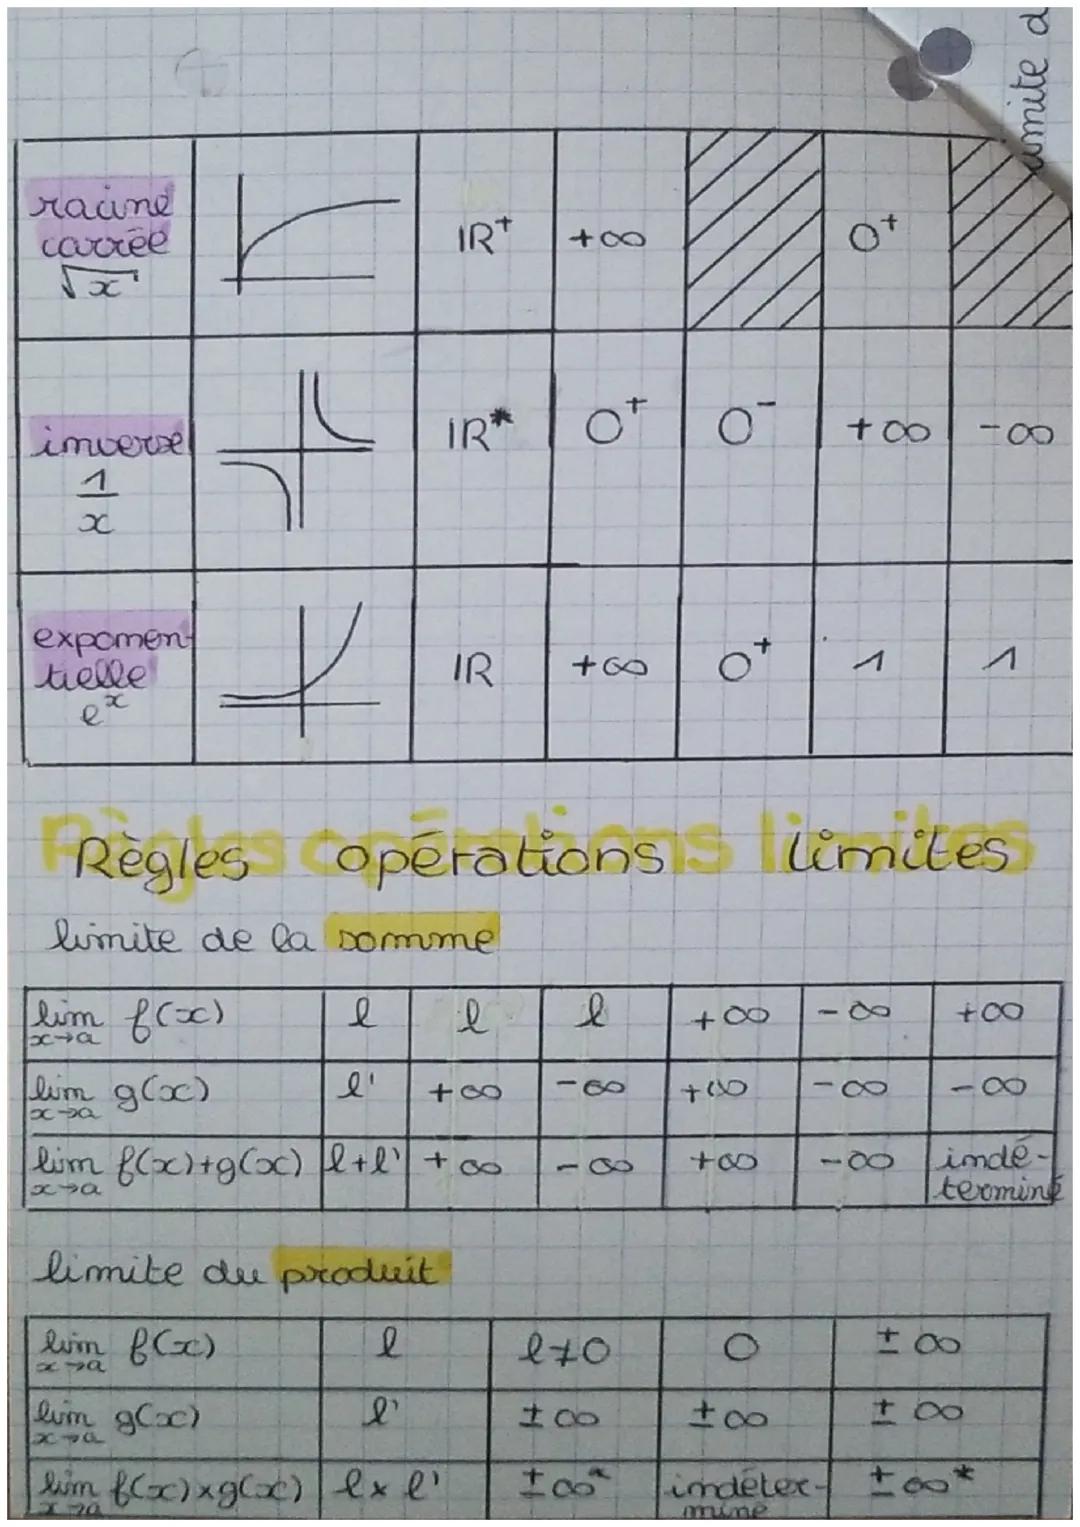 limite d
racine
carrée
√x
IR⁺ +∞ 0⁺
inverse
1/x
IR* 0⁺ 0⁻ +∞ -∞
exponen-
tielle
eˣ
IR +∞ 0⁺ 1 1
Règles opérations limites
limite de la somme
lim x→a f(x) l l l +∞ -∞ +∞
lim x→a g(x) l' +∞ -∞ +∞ -∞ -∞
lim x→a f(x)+g(x) l+l' +∞ -∞ +∞ -∞ indé-
terminé
limite du produit
lim x→a f(x) l l≠0 0 ±∞
lim x→a g(x) l' ±∞ ±∞ ±∞
lim x→a f(x)×g(x) l×l' ±∞* indéter- ±∞*
miné